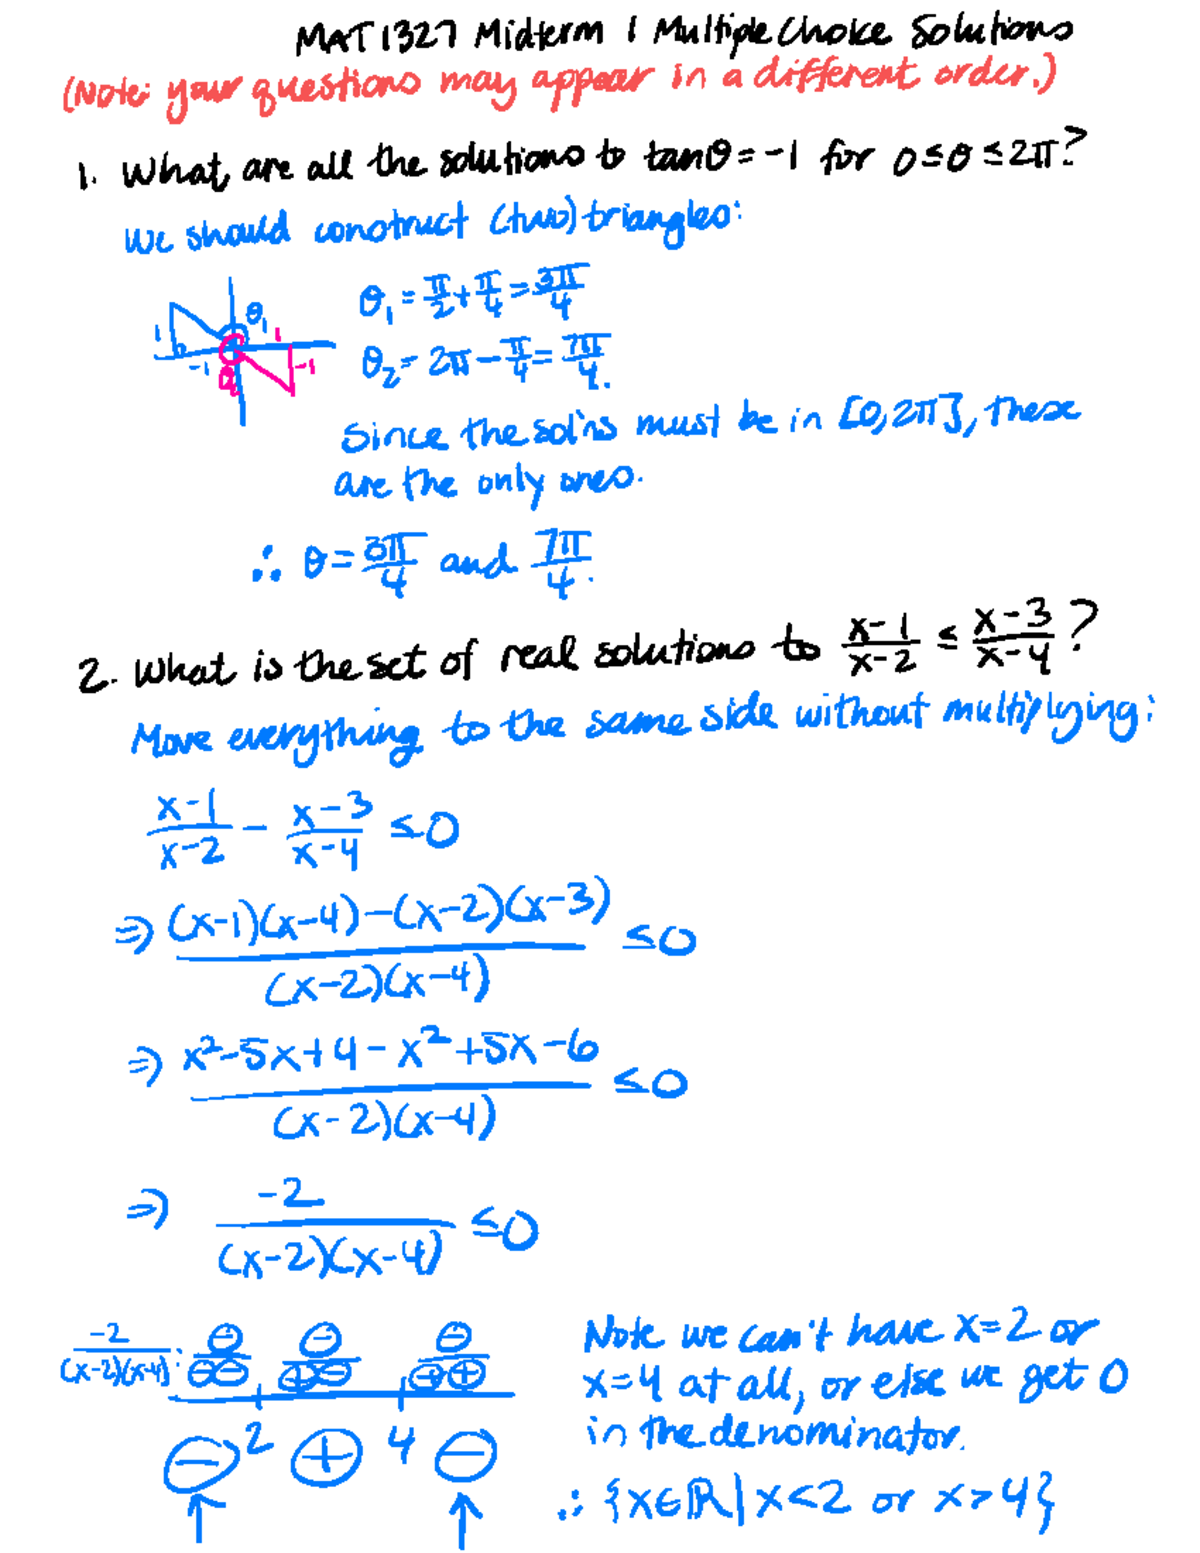 MAT1327 Midterm 1 Multiple Choice Solutions
(Note: your questions may appear in a different order.)
1. What are all the solutions to tanθ = -1 for 0 ≤ θ ≤ 2π?
We should construct (two) triangles:
1 -1 θ₁ 1 -1 θ₂
θ₁ = π/2 + π/4 = 3π/4
θ₂ = 2π - π/4 = 7π/4.
Since the sol'ns must be in [0,2π], these
are the only ones.
∴ θ = 3π/4 and 7π/4.
2. What is the set of real solutions to (x-1)/(x-2) ≤ (x-3)/(x-4)?
Move everything to the same side without multiplying:
(x-1)/(x-2) - (x-3)/(x-4) ≤ 0
⇒ ((x-1)(x-4)-(x-2)(x-3))/((x-2)(x-4)) ≤ 0
⇒ (x²-5x+4-x²+5x-6)/((x-2)(x-4)) ≤ 0
⇒ -2/((x-2)(x-4)) ≤ 0
-2/((x-2)(x-4)): ⊖/(⊖⊖) ⊖/(⊕⊖) ⊖/(⊕⊕)
⊖ 2 ⊕ 4 ⊖
↑ ↑
Note we can't have x=2 or
x=4 at all, or else we get 0
in the denominator.
∴ {x∈ℝ | x<2 or x>4}